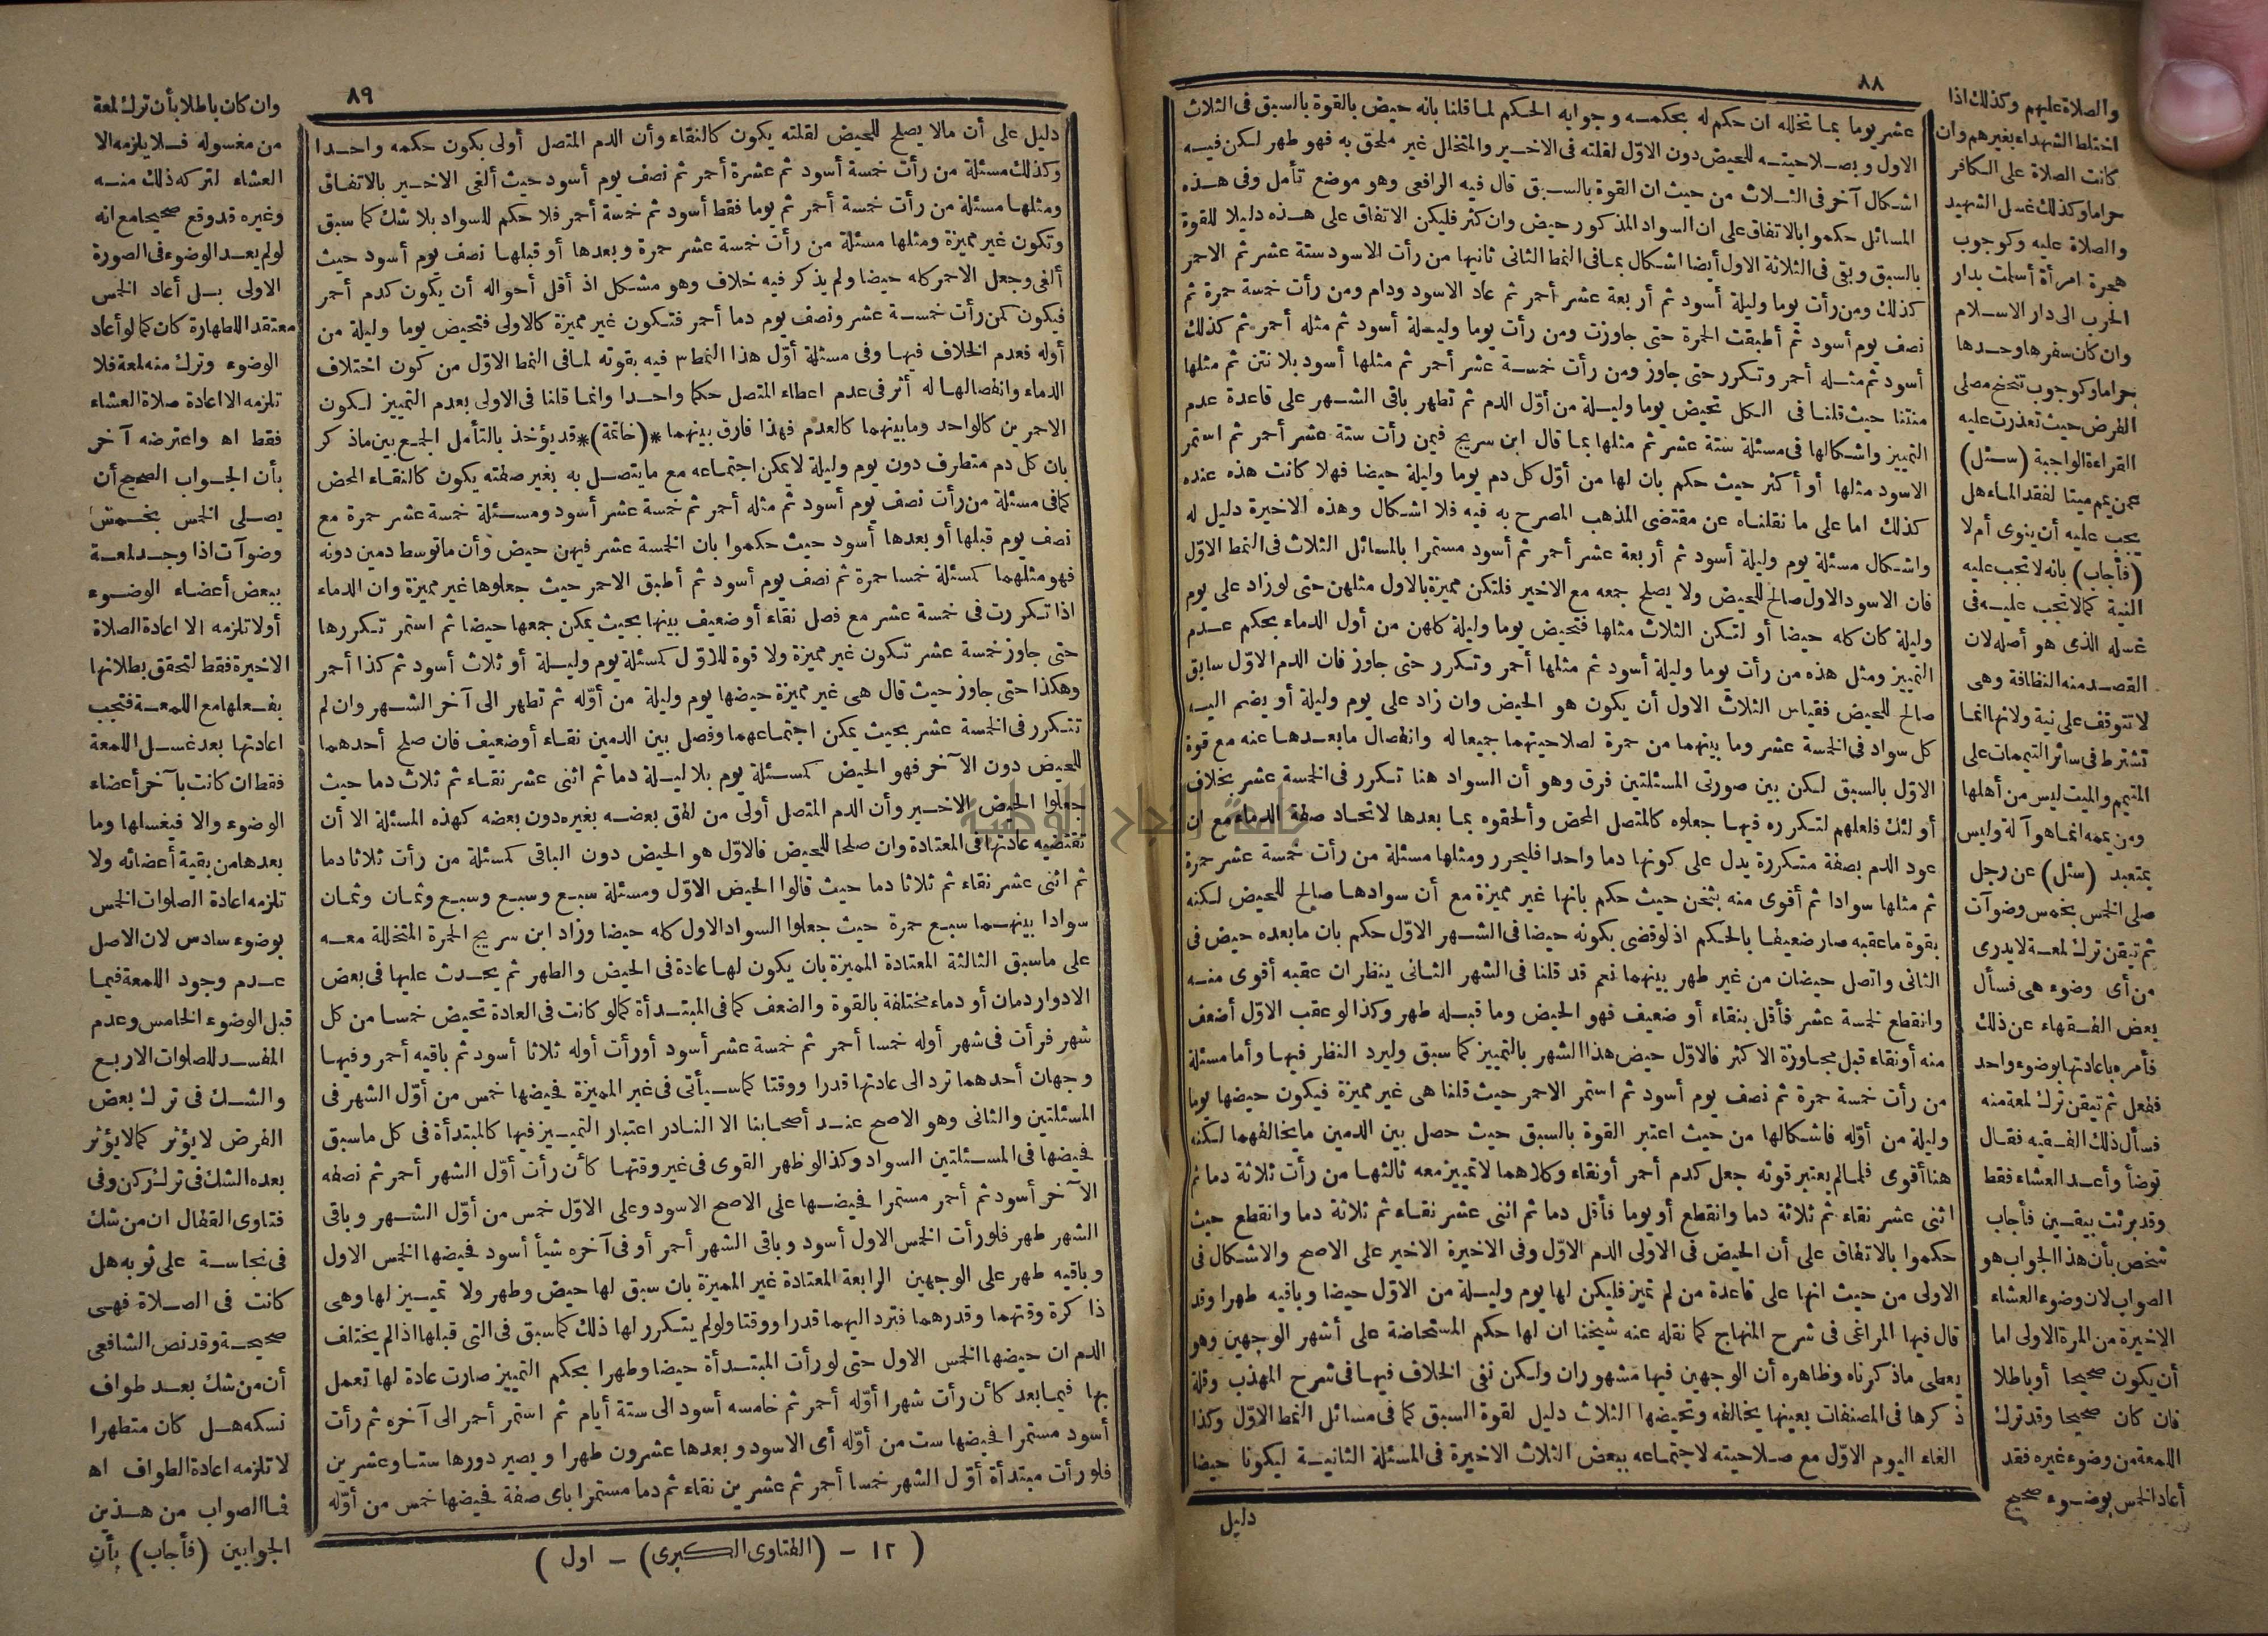 ٨٨
عشر يوما بما تخلله ان حكم له بحكمه وجوابه الحكم لما قلنا بانه حيض بالقوة بالسبق فى الثلاث
الاول وبصلاحيته للحيض دون الاوّل لقلته فى الاخير والمتخلل غير ملحق به فهو طهر لكن فيه
اشكال آخر فى الثلاث من حيث ان القوة بالسبق قال فيه الرافعى وهو موضع تأمل وفى هذه
المسائل حكموا بالاتفاق على ان السواد المذكور حيض وان كثر فليكن الاتفاق على هذه دليلا للقوة
بالسبق وبقى فى الثلاثة الاول أيضا اشكال بما فى النمط الثانى ثانيها من رأت الاسود ستة عشر ثم الاحمر
كذلك ومن رأت يوما وليلة أسود ثم أربعة عشر أحمر ثم عاد الاسود ودام ومن رأت خمسة حمرة ثم
نصف يوم أسود ثم أطبقت الحمرة حتى جاوزت ومن رأت يوما وليلة أسود ثم مثله أحمر ثم كذلك
أسود ثم مثله أحمر وتكرر حتى جاوز ومن رأت خمسة عشر أحمر ثم مثلها أسود بلا نتن ثم مثلها
منتنا حيث قلنا فى الكل تحيض يوما وليلة من أوّل الدم ثم تطهر باقى الشهر على قاعدة عدم
التمييز واشكالها فى مسئلة ستة عشر ثم مثلها بما قال ابن سريج فيمن رأت ستة عشر أحمر ثم استمر
الاسود مثلها أو أكثر حيث حكم بان لها من أوّل كل دم يوما وليلة حيضا فهلا كانت هذه عنده
كذلك اما على ما نقلناه عن مقتضى المذهب المصرح به فيه فلا اشكال وهذه الاخيرة دليل له
واشكال مسئلة يوم وليلة أسود ثم أربعة عشر أحمر ثم أسود مستمرا بالمسائل الثلاث فى النمط الاوّل
فان الاسود الاول صالح للحيض ولا يصلح جمعه مع الاخير فلتكن مميزة بالاول مثلهن حتى لو زاد على يوم
وليلة كان كله حيضا أو لتكن الثلاث مثلها فتحيض يوما وليلة كلهن من أول الدماء بحكم عدم
التمييز ومثل هذه من رأت يوما وليلة أسود ثم مثلها أحمر وتكرر حتى جاوز فان الدم الاوّل سابق
صالح للحيض فقياس الثلاث الاول أن يكون هو الحيض وان زاد على يوم وليلة أو يضم اليه
كل سواد فى الخمسة عشر وما بينهما من حمرة لصلاحيتهما جميعا له وانفصال ما بعدها عنه مع قوة
الاوّل بالسبق لكن بين صورتى المسئلتين فرق وهو أن السواد هنا تكرر فى الخمسة عشر بخلاف
أولئك فلعلهم لتكرره فيها جعلوه كالمتصل المحض وألحقوه بما بعدها لاتحاد صفة الدماء مع ان
عود الدم بصفة متكررة يدل على كونها دما واحدا فليحرر ومثلها مسئلة من رأت خمسة عشر حمرة
ثم مثلها سوادا ثم أقوى منه بثخن حيث حكم بانها غير مميزة مع أن سوادها صالح للحيض لكنه
بقوة ما عقبه صار ضعيفا بالحكم اذ لو قضى بكونه حيضا فى الشهر الاوّل حكم بان ما بعده حيض فى
الثانى واتصل حيضان من غير طهر بينهما نعم قد قلنا فى الشهر الثانى ينظر ان عقبه أقوى منه
وانقطع لخمسة عشر فأقل بنقاء أو ضعيف فهو الحيض وما قبله طهر وكذا لو عقب الاوّل أضعف
منه أو نقاء قبل مجاوزة الاكثر فالاوّل حيض هذا الشهر بالتمييز كما سبق وليرد النظر فيها وأما مسئلة
من رأت خمسة حمرة ثم نصف يوم أسود ثم استمر الاحمر حيث قلنا هى غير مميزة فيكون حيضها يوما
وليلة من أوّله فاشكالها من حيث اعتبر القوة بالسبق حيث حصل بين الدمين ما يخالفهما لكنه
هنا أقوى فلما لم يعتبر قوته جعل كدم أحمر أو نقاء وكلاهما لا تمييز معه ثالثها من رأت ثلاثة دما ثم
اثنى عشر نقاء ثم ثلاثة دما وانقطع أو يوما فأقل دما ثم اثنى عشر نقاء ثم ثلاثة دما وانقطع حيث
حكموا بالاتفاق على أن الحيض فى الاولى الدم الاوّل وفى الاخيرة الاخير على الاصح والاشكال فى
الاولى من حيث انها على قاعدة من لم تميز فليكن لها يوم وليلة من الاوّل حيضا وباقيه طهرا وقد
قال فيها المراغى فى شرح المنهاج كما نقله عنه شيخنا ان لها حكم المستحاضة على أشهر الوجهين وهو
يعطى ما ذكرناه وظاهره أن الوجهين فيها مشهوران ولكن نفى الخلاف فيها فى شرح المهذب وقلة
ذكرها فى المصنفات بعينها يخالفه وتحيضها الثلاث دليل لقوة السبق كما فى مسائل النمط الاوّل وكذا
الغاء اليوم الاوّل مع صلاحيته لاجتماعه ببعض الثلاث الاخيرة فى المسئلة الثانية ليكونا حيضا
دليل
والصلاة عليهم وكذلك اذا
اختلط الشهداء بغيرهم وان
كانت الصلاة على الكافر
حراما وكذلك غسل الشهيد
والصلاة عليه وكوجوب
هجرة امرأة أسلمت بدار
الحرب الى دار الاسلام
وان كان سفرها وحدها
حراما وكوجوب تنحنح مصلى
الفرض حيث تعذرت عليه
القراءة الواجبة (سئل)
عمن يمم ميتا لفقد الماء هل
يجب عليه أن ينوى أم لا
(فأجاب) بانه لا تجب عليه
النية كما لا تجب عليه فى
غسله الذى هو أصله لان
القصد منه النظافة وهى
لا تتوقف على نية ولانها انما
تشترط فى سائر التيممات على
المتيمم والميت ليس من أهلها
ومن يممه انما هو آلة وليس
بمتعبد (سئل) عن رجل
صلى الخمس بخمس وضوآت
ثم تيقن ترك لمعة لا يدرى
من أى وضوء هى فسأل
بعض الفقهاء عن ذلك
فأمره باعادتها بوضوء واحد
ففعل ثم تيقن ترك لمعة منه
فسأل ذلك الفقيه فقال
توضأ وأعد العشاء فقط
وقد برئت بيقين فأجاب
شخص بأن هذا الجواب هو
الصواب لان وضوء العشاء
الاخيرة من المرة الاولى اما
أن يكون صحيحا أو باطلا
فان كان صحيحا وقد ترك
اللمعة من وضوء غيره فقد
أعاد الخمس بوضوء صحيح
٨٩
دليل على أن مالا يصلح للحيض لقلته يكون كالنقاء وأن الدم المتصل أولى بكون حكمه واحدا
وكذلك مسئلة من رأت خمسة أسود ثم عشرة أحمر ثم نصف يوم أسود حيث ألغى الاخير بالاتفاق
ومثلها مسئلة من رأت خمسة أحمر ثم يوما فقط أسود ثم خمسة أحمر فلا حكم للسواد بلا شك كما سبق
وتكون غير مميزة ومثلها مسئلة من رأت خمسة عشر حمرة وبعدها أو قبلها نصف يوم أسود حيث
ألغى وجعل الاحمر كله حيضا ولم يذكر فيه خلاف وهو مشكل اذ أقل أحواله أن يكون كدم أحمر
فيكون كمن رأت خمسة عشر ونصف يوم دما أحمر فتكون غير مميزة كالاولى فتحيض يوما وليلة من
أوله فعدم الخلاف فيها وفى مسئلة أوّل هذا النمط ٣ فيه بقوته لما فى النمط الاوّل من كون اختلاف
الدماء وانفصالها له أثر فى عدم اعطاء المتصل حكما واحدا وانما قلنا فى الاولى بعدم التمييز لكون
الاحمرين كالواحد وما بينهما كالعدم فهذا فارق بينهما *(خاتمة)* قد يؤخذ بالتأمل الجمع بين ما ذكر
بان كل دم متطرف دون يوم وليلة لا يمكن اجتماعه مع ما يتصل به بغير صفته يكون كالنقاء المحض
كما فى مسئلة من رأت نصف يوم أسود ثم مثله أحمر ثم خمسة عشر أسود ومسئلة خمسة عشر حمرة مع
نصف يوم قبلها أو بعدها أسود حيث حكموا بان الخمسة عشر فيهن حيض وأن ما توسط دمين دونه
فهو مثلهما كمسئلة خمسا حمرة ثم نصف يوم أسود ثم أطبق الاحمر حيث جعلوها غير مميزة وان الدماء
اذا تكررت فى خمسة عشر مع فصل نقاء أو ضعيف بينها بحيث يمكن جمعها حيضا ثم استمر تكررها
حتى جاوز خمسة عشر تكون غير مميزة ولا قوة للاوّل كمسئلة يوم وليلة أو ثلاث أسود ثم كذا أحمر
وهكذا حتى جاوز حيث قال هى غير مميزة حيضها يوم وليلة من أوّله ثم تطهر الى آخر الشهر وان لم
تتكرر فى الخمسة عشر بحيث يمكن اجتماعهما وفصل بين الدمين نقاء أو ضعيف فان صلح أحدهما
للحيض دون الآخر فهو الحيض كمسئلة يوم بلا ليلة دما ثم اثنى عشر نقاء ثم ثلاث دما حيث
جعلوا الحيض الاخير وأن الدم المتصل أولى من لفق بعضه بغيره دون بعضه كهذه المسئلة الا أن
تقتضيه عادتها فى المعتادة وان صلحا للحيض فالاوّل هو الحيض دون الباقى كمسئلة من رأت ثلاثا دما
ثم اثنى عشر نقاء ثم ثلاثا دما حيث قالوا الحيض الاوّل ومسئلة سبع وسبع وسبع وثمان وثمان
سوادا بينهما سبع حمرة حيث جعلوا السواد الاول كله حيضا وزاد ابن سريج الحمرة المتخللة معه
على ما سبق الثالثة المعتادة المميزة بان يكون لها عادة فى الحيض والطهر ثم يحدث عليها فى بعض
الادوار دمان أو دماء مختلفة بالقوة والضعف كما فى المبتدأة كما لو كانت فى العادة تحيض خمسا من كل
شهر فرأت فى شهر أوله خمسا أحمر ثم خمسة عشر أسود أو رأت أوله ثلاثا أسود ثم باقيه أحمر وفيها
وجهان أحدهما ترد الى عادتها قدرا ووقتا كما سيأتى فى غير المميزة فحيضها خمس من أوّل الشهر فى
المسئلتين والثانى وهو الاصح عند أصحابنا الا النادر اعتبار التمييز فيها كالمبتدأة فى كل ما سبق
فحيضها فى المسئلتين السواد وكذا لو ظهر القوى فى غير وقتها كأن رأت أوّل الشهر أحمر ثم نصفه
الآخر أسود ثم أحمر مستمرا فحيضها على الاصح الاسود وعلى الاوّل خمس من أوّل الشهر وباقى
الشهر طهر فلو رأت الخمس الاول أسود وباقى الشهر أحمر أو فى آخره شيأ أسود فحيضها الخمس الاول
وباقيه طهر على الوجهين الرابعة المعتادة غير المميزة بان سبق لها حيض وطهر ولا تمييز لها وهى
ذاكرة وقتهما وقدرهما فترد اليهما قدرا ووقتا ولو لم يتكرر لها ذلك كما سبق فى التى قبلها اذا لم يختلف
الدم ان حيضها الخمس الاول حتى لو رأت المبتدأة حيضا وطهرا بحكم التمييز صارت عادة لها تعمل
بها فيما بعد كأن رأت شهرا أوّله أحمر ثم خامسه أسود الى ستة أيام ثم استمر أحمر الى آخره ثم رأت
أسود مستمرا فحيضها ست من أوّله أى الاسود وبعدها عشرون طهرا ويصير دورها ستا وعشرين
فلو رأت مبتدأة أوّل الشهر خمسا أحمر ثم عشرين نقاء ثم دما مستمرا باى صفة فحيضها خمس من أوّله
(١٢ - (الفتاوى الكبرى) - اول)
وان كان باطلا بأن ترك لمعة
من مغسوله فلا يلزمه الا
العشاء لتركه ذلك منه
وغيره قد وقع صحيحا مع انه
لو لم يعد الوضوء فى الصورة
الاولى بل أعاد الخمس
معتقدا للطهارة كان كما لو أعاد
الوضوء وترك منه لمعة فلا
تلزمه الا اعادة صلاة العشاء
فقط اه واعترضه آخر
بأن الجواب الصحيح أن
يصلى الخمس بخمس
وضوآت اذا وجد لمعة
ببعض أعضاء الوضوء
أو لا تلزمه الا اعادة الصلاة
الاخيرة فقط لتحقق بطلانها
بفعلها مع اللمعة فتجب
اعادتها بعد غسل اللمعة
فقط ان كانت بآخر أعضاء
الوضوء والا فيغسلها وما
بعدها من بقية أعضائه ولا
تلزمه اعادة الصلوات الخمس
بوضوء سادس لان الاصل
عدم وجود اللمعة فيما
قبل الوضوء الخامس وعدم
المفسد للصلوات الاربع
والشك فى ترك بعض
الفرض لا يؤثر كما لا يؤثر
بعده الشك فى ترك ركن وفى
فتاوى القفال ان من شك
فى نجاسة على ثوبه هل
كانت فى الصلاة فهى
صحيحة وقد نص الشافعى
أن من شك بعد طواف
نسكه هل كان متطهرا
لا تلزمه اعادة الطواف اه
فما الصواب من هذين
الجوابين (فأجاب) بأن
جامعة النجاح الوطنية